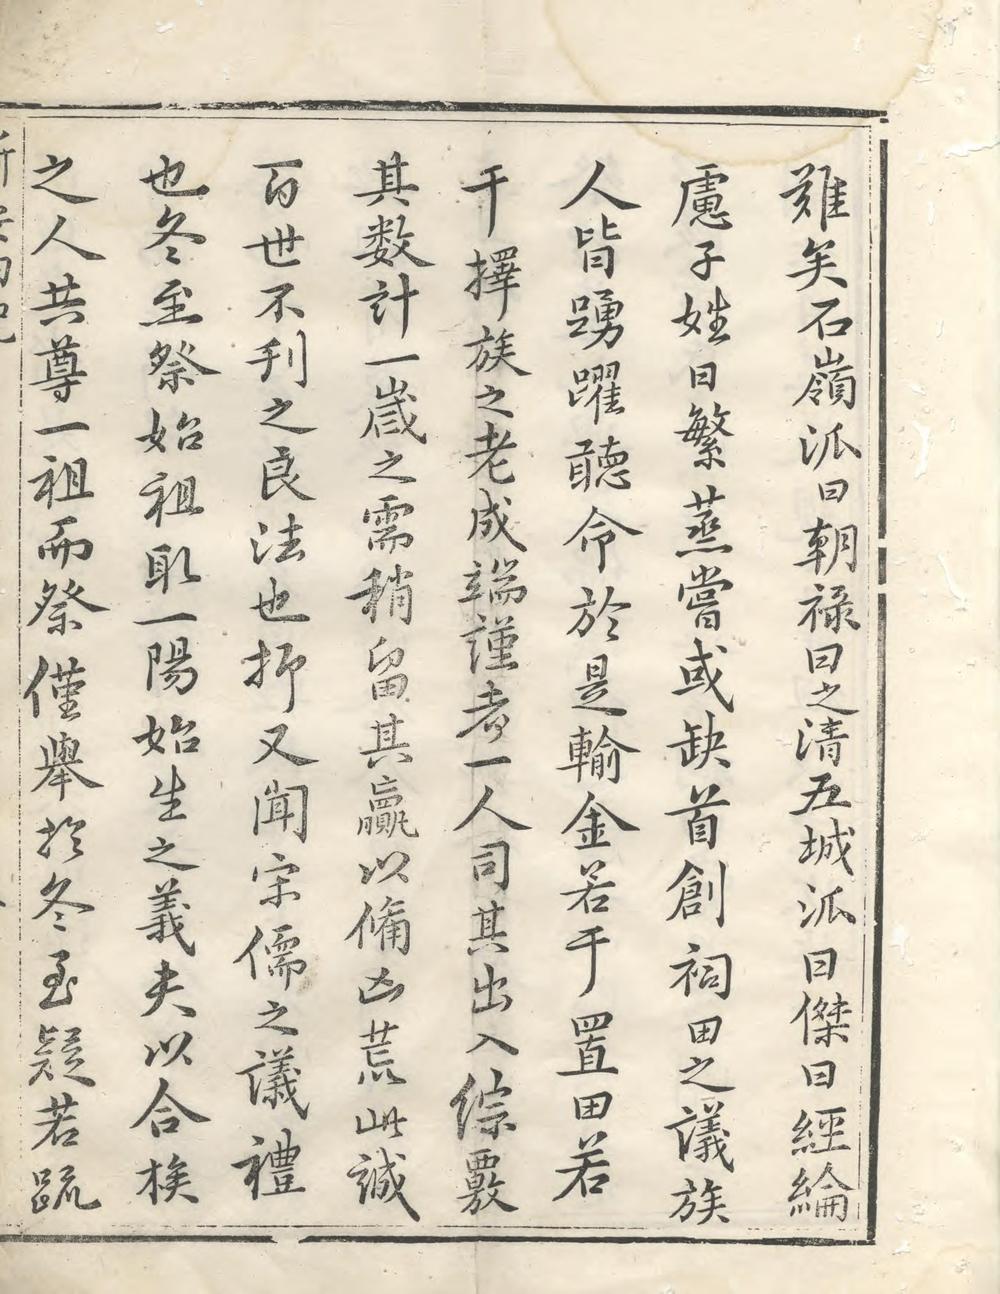 難矣石嶺派曰朝祿曰之清五城派曰傑曰經綸
慮子姓日繁蒸嘗或缺首創祠田之議族
人皆踴躍聽命於是輸金若干置田若
干擇族之老成端謹者一人司其出入綜覈
其数計一歲之需稍留其贏以俻凶荒此誠
百世不刊之良法也抑又聞宋儒之議禮
也冬至祭始祖取一陽始生之義夫以合族
之人共尊一祖而祭僅舉於冬至疑若疏